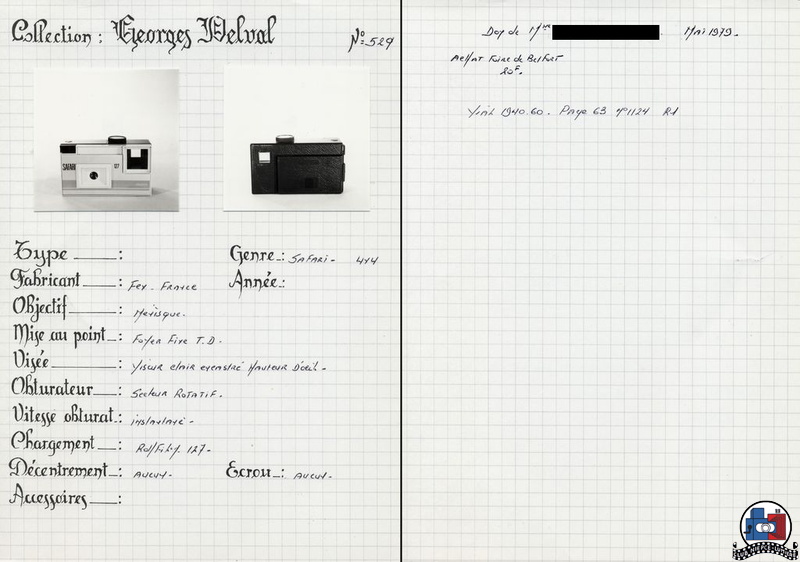 Collection : Georges Delval
No 529
SAFARI
127
Type :
Genre : SAFARI - 4x4
Fabricant : Fex - France
Année :
Objectif : Ménisque.
Mise au point : Foyer Fixe T.D.
Visée : Viseur clair excentré Hauteur D'œil -
Obturateur : Secteur ROTATIF.
Vitesse obturat. : instantané -
Chargement : Roll Film 127 -
Décentrement : AUCUN -
Ecrou : AUCUN -
Accessoires :
Mai 1979.
Achat Foire de Belfort
20F.
1940.60. Page 63 n° 1124